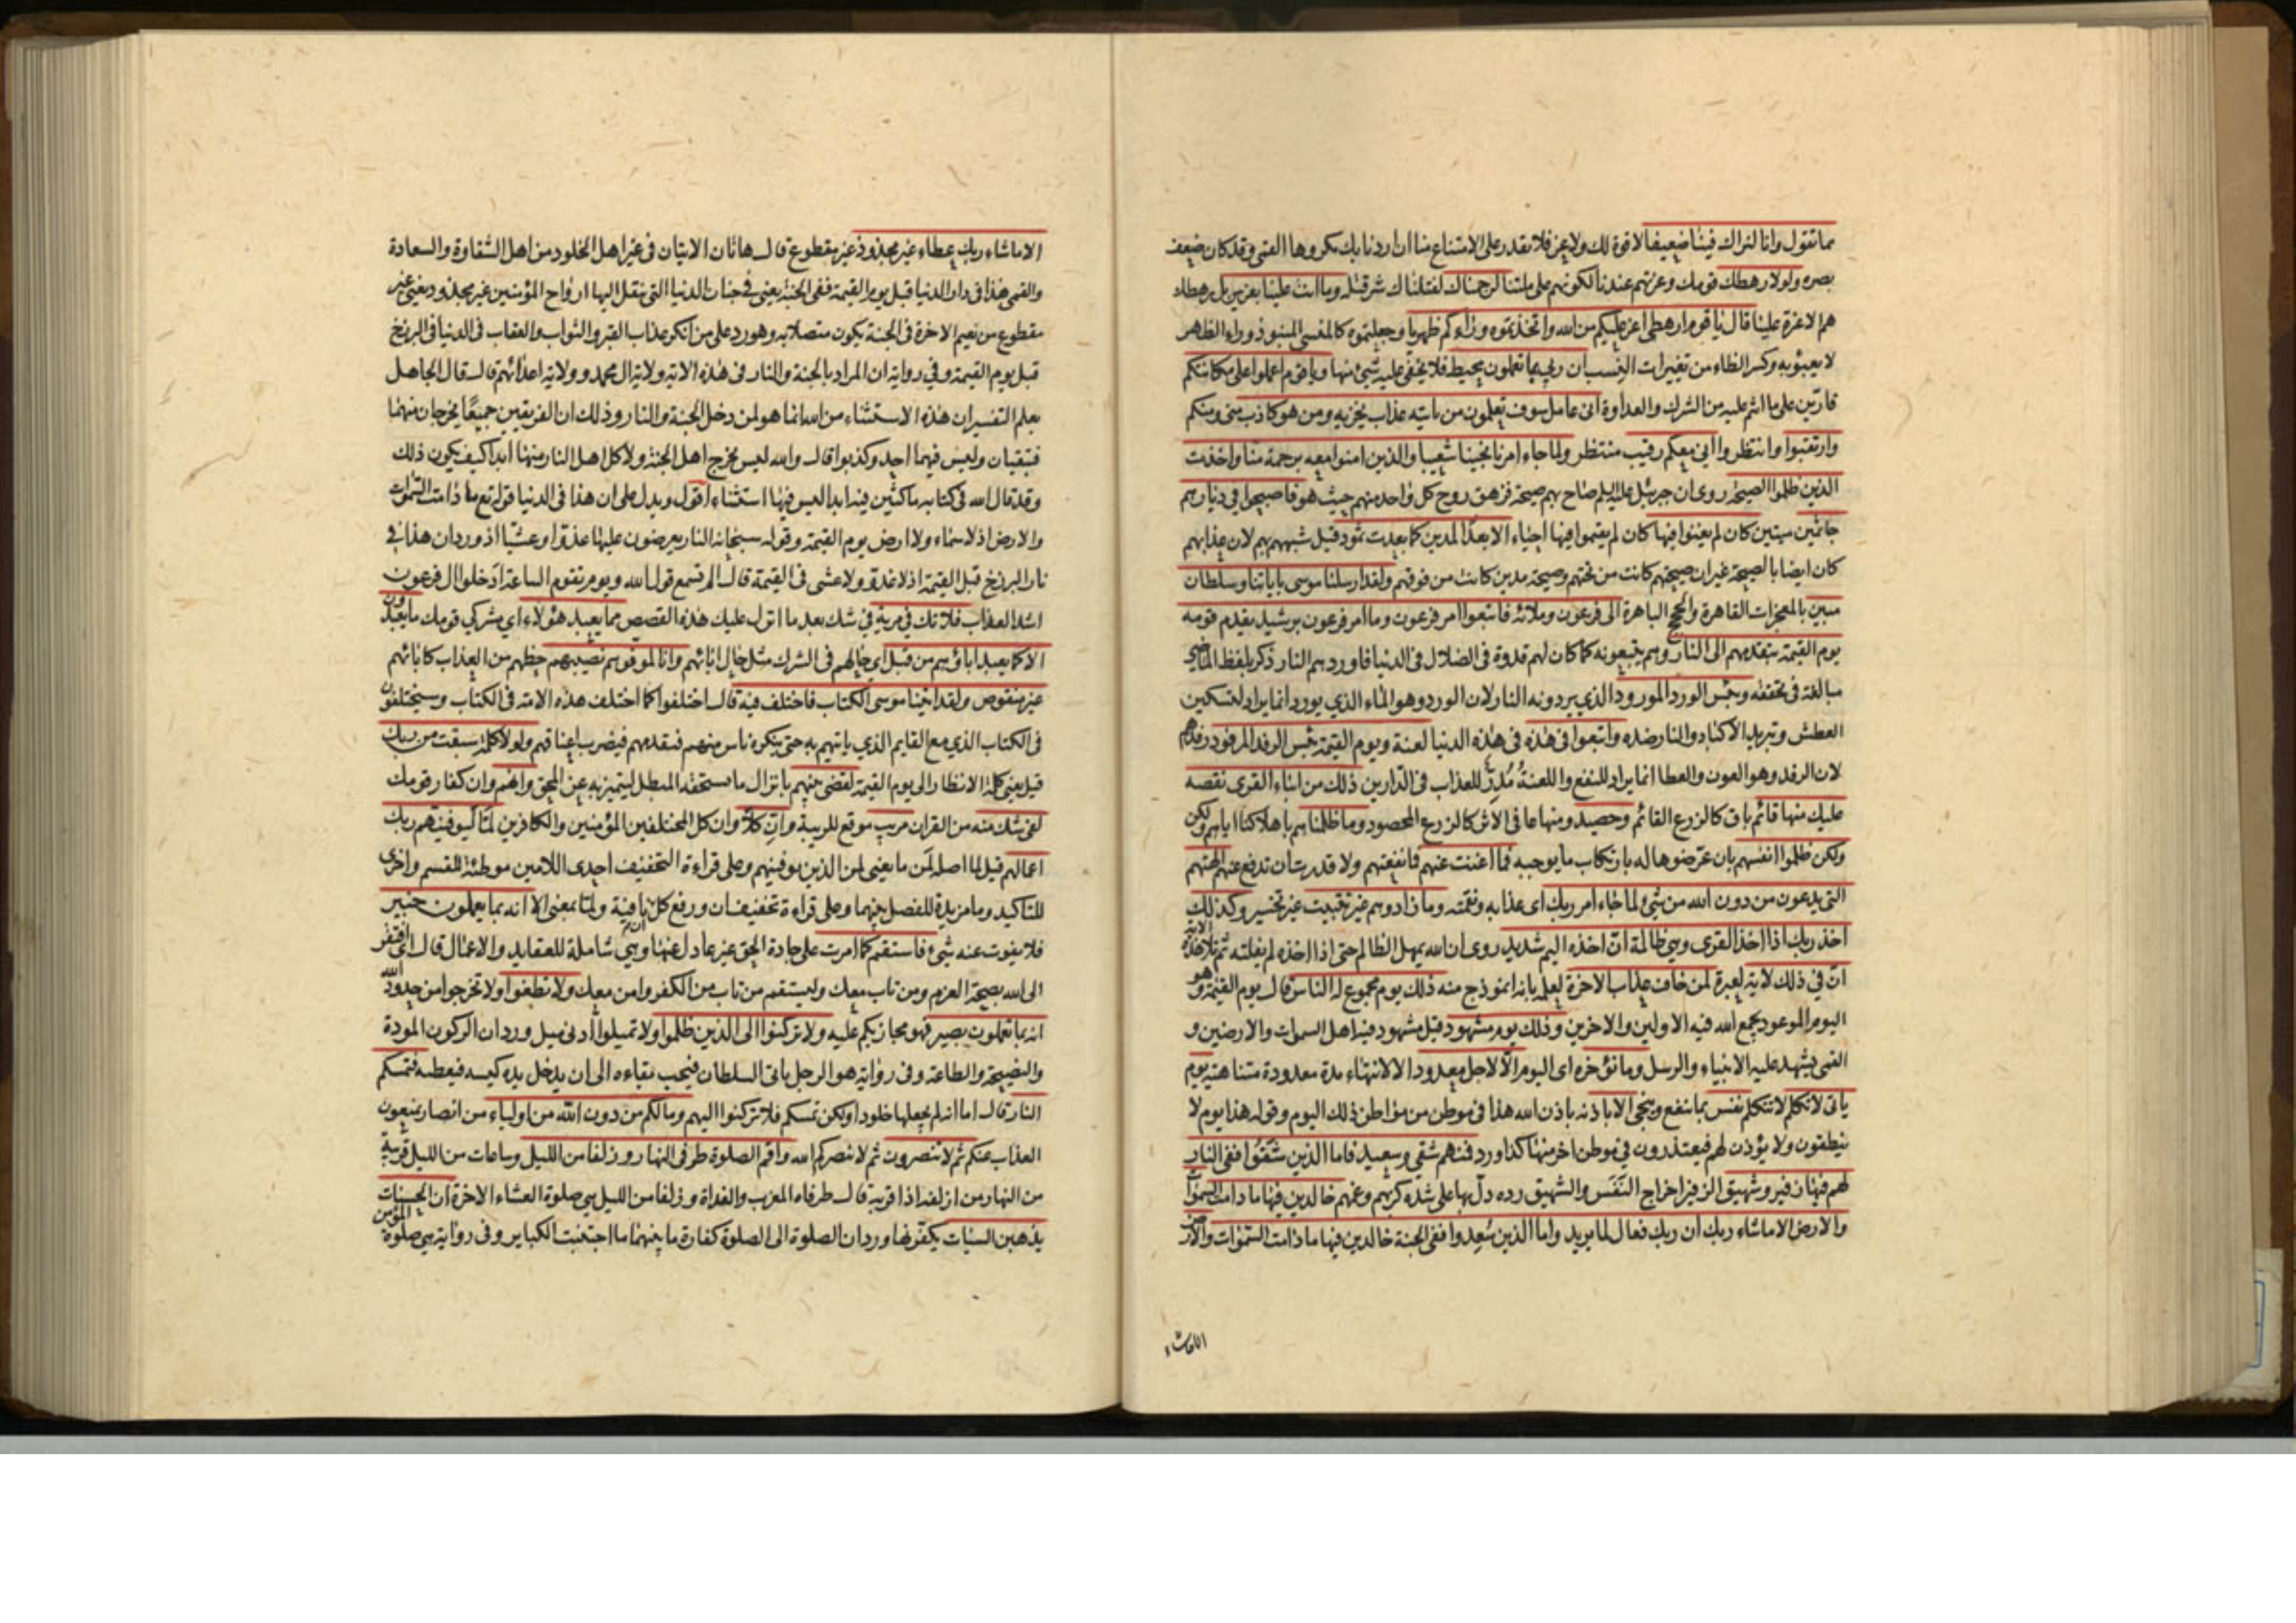 مما تقول وانا لنراك فينا ضعيفا لا قوة لك ولا عز فلا تقدر على الامتناع منا ان اردنا بك مكروها القمى وقد كان ضعف
بصره ولولا رهطك قومك وعزتهم عندنا لكونهم على ملتنا لرجمناك لقتلناك شر قتلة وما انت علينا بعزيز بل رهطك
هم الاعزة علينا قال يا قوم ارهطى اعز عليكم من الله واتخذتموه وراءكم ظهريا وجعلتموه كالمنسى المنبوذ وراء الظهر
لا يعبؤ به وكسر الظاء من تغييرات النسب ان ربى بما تعملون محيط فلا يخفى عليه شئ منها ويا قوم اعملوا على مكانتكم
قارين على ما انتم عليه من الشرك والعداوة انى عامل سوف تعلمون من ياتيه عذاب يخزيه ومن هو كاذب منى ومنكم
وارتقبوا وانتظروا انى معكم رقيب منتظر ولما جاء امرنا نجينا شعيبا والذين امنوا معه برحمة منا واخذت
الذين ظلموا الصيحة روى ان جبرئيل عليه السلم صاح بهم صيحة فزهق روح كل واحد منهم حيث هو فاصبحوا فى ديارهم
جاثمين ميتين كان لم يغنوا فيها كان لم يقيموا فيها احياء الا بعدا لمدين كما بعدت ثمود قيل شبههم بهم لان عذابهم
كان ايضا بالصيحة غير ان صيحتهم كانت من تحتهم وصيحة مدين كانت من فوقهم ولقد ارسلنا موسى باياتنا وسلطان
مبين بالمعجزات القاهرة والحجج الباهرة الى فرعون وملائه فاتبعوا امر فرعون وما امر فرعون برشيد يقدم قومه
يوم القيمة يتقدمهم الى النار وهم يتبعونه كما كان لهم قدوة فى الضلال فى الدنيا فاوردهم النار ذكر بلفظ الماضى
مبالغة فى تحققه وبئس الورد المورود الذي يردونه النار لان الورد وهو الماء الذي يورد انما يراد لتسكين
العطش وتبريد الاكباد والنار ضده واتبعوا فى هذه فى هذه الدنيا لعنة ويوم القيمة بئس الرفد المرفود رفدهم
لان الرفد وهو العون والعطا انما يراد للنفع واللعنة مدد للعذاب فى الدارين ذلك من انباء القرى نقصه
عليك منها قائم باق كالزرع القائم وحصيد ومنها عافى الاثر كالزرع المحصود وما ظلمناهم باهلاكنا اياهم ولكن
ولكن ظلموا انفسهم بان عرضوها له بارتكاب ما يوجبه فما اغنت عنهم فما نفعتهم ولا قدرت ان تدفع عنهم الهتهم
التى يدعون من دون الله من شئ لما جاء امر ربك اى عذابه ونقمته وما زادوهم غير تتبيب غير تخسير وكذلك
اخذ ربك اذا اخذ القرى وهى ظالمة ان اخذه اليم شديد روى ان الله يمهل الظالم حتى اذا اخذه لم يفلته ثم تلا هذه الاية
ان في ذلك لاية لعبرة لمن خاف عذاب الاخرة لعلمه بانه انموذج منه ذلك يوم مجموع له الناس قال يوم القيمة وهو
اليوم الموعود يجمع الله فيه الاولين والاخرين وذلك يوم مشهود قيل مشهود فيه اهل السموات والارضين و
القمى يشهد عليه الانبياء والرسل وما نؤخره اى اليوم الا لاجل معدود الا لانتهاء مدة معدودة متناهية يوم
ياتى لا تكلم لا تتكلم نفس بما ينفع وينجى الا باذنه باذن الله هذا فى موطن من مواطن ذلك اليوم وقوله هذا يوم لا
ينطقون ولا يؤذن لهم فيعتذرون فى موطن اخر منها كذا ورد فمنهم شقى وسعيد فاما الذين شقوا ففى النار
لهم فيها زفير وشهيق الزفير اخراج النفس والشهيق رده دل بها على شدة كربهم وغمهم خالدين فيها ما دامت السموات
والارض الا ماشاء ربك ان ربك فعال لما يريد واما الذين سعدوا ففى الجنة خالدين فيها ما دامت السموات والارض
الا ماشاء
الا ماشاء ربك عطاء غير مجذوذ غير مقطوع قال هاتان الايتان فى غير اهل الخلود من اهل الشقاوة والسعادة
والقمى هذا فى دار الدنيا قبل يوم القيمة ففى الجنة يعنى فى جنان الدنيا التى تنقل اليها ارواح المؤمنين غير مجذوذ يعنى غير
مقطوع من نعيم الاخرة فى الجنة يكون متصلا به وهو رد على من انكر عذاب القبر والثواب والعقاب فى الدنيا فى البرزخ
قبل يوم القيمة وفي رواية ان المراد بالجنة والنار فى هذه الاية ولاية ال محمد وولاية اعدائهم قال قال الجاهل
بعلم التفسير ان هذه الاستثناء من الله انما هو لمن دخل الجنة والنار وذلك ان الفريقين جميعا يخرجان منهما
فتبقيان وليس فيهما احد وكذبوا قال والله ليس يخرج اهل الجنة ولا كل اهل النار منهما ابدا كيف يكون ذلك
وقد قال الله فى كتابه ماكثين فيه ابدا ليس فيها استثناء اقول ويدل على ان هذا فى الدنيا قوله تع ما دامت السموات
والارض اذ لا سماء ولا ارض يوم القيمة وقوله سبحانه النار يعرضون عليها غدوا وعشيا اذ ورد ان هذا فى
نار البرزخ قبل القيمة اذ لا غدو ولا عشى فى القيمة قال الم تسمع قول الله ويوم تقوم الساعة ادخلوا ال فرعون
اشد العذاب فلا تك فى مرية فى شك بعد ما انزل عليك هذه القصص مما يعبد هؤلاء اي مشركي قومك ما يعبدون
الا كما يعبد اباؤهم من قبل اى حالهم فى الشرك مثل حال ابائهم وانا لموفوهم نصيبهم حظهم من العذاب كابائهم
غير منقوص ولقد اتينا موسى الكتاب فاختلف فيه قال اختلفوا كما اختلف هذه الامة فى الكتاب وسيختلفون
فى الكتاب الذي مع القايم الذي ياتيهم به حتى ينكره ناس منهم فيقدمهم فيضرب اعناقهم ولولا كلمة سبقت من ربك
قيل يعنى كلمة الانظار الى يوم القيمة لقضى بينهم بانزال ما يستحقه المبطل ليتميز به عن المحق وانهم وان كفار قومك
لفى شك منه من القران مريب موقع للريبة وان كلا وان كل المختلفين المؤمنين والكافرين لما ليوفينهم ربك
اعمالهم قيل لما اصله لمن ما يعنى لمن الذين يوفينهم وعلى قراءة التخفيف احدى اللامين موطئة للقسم واخرى
للتاكيد وما مزيدة للفصل بينهما وعلى قراءة تخفيف ان ورفع كل نافية ولما بمعنى الا انه بما يعملون خبير
فلا يفوت عنه شئ فاستقم كما امرت على جادة الحق غير عادل عنها وهي شاملة للعقايد والاعمال قال اى افتقر
الى الله بصحة العزم ومن تاب معك وليستقم من تاب من الكفر وامن معك ولا تطغوا ولا تخرجوا من حدود الله
انه بما تعملون بصير فهو مجازيكم عليه ولا تركنوا الى الذين ظلموا ولا تميلوا ادنى ميل ورد ان الركون المودة
والنصيحة والطاعة وفى رواية هو الرجل ياتى السلطان فيحب بقاءه الى ان يدخل يده كيسه فيعطيه فتمسكم
النار قال اما انه لم يجعلها خلودا ولكن تمسكم فلا تركنوا اليهم وما لكم من دون الله من اولياء من انصار يمنعون
العذاب عنكم ثم لا تنصرون ثم لا ينصركم الله واقم الصلوة طرفى النهار وزلفا من الليل وساعات من الليل قريبة
من النهار من ازلفه اذا قربه قال طرفاه المغرب والغداة وزلفا من الليل هى صلوة العشاء الاخرة ان الحسنات
يذهبن السيئات يكفرنها ورد ان الصلوة الى الصلوة كفارة ما بينهما ما اجتنبت الكباير وفى رواية هى صلوة المؤمن